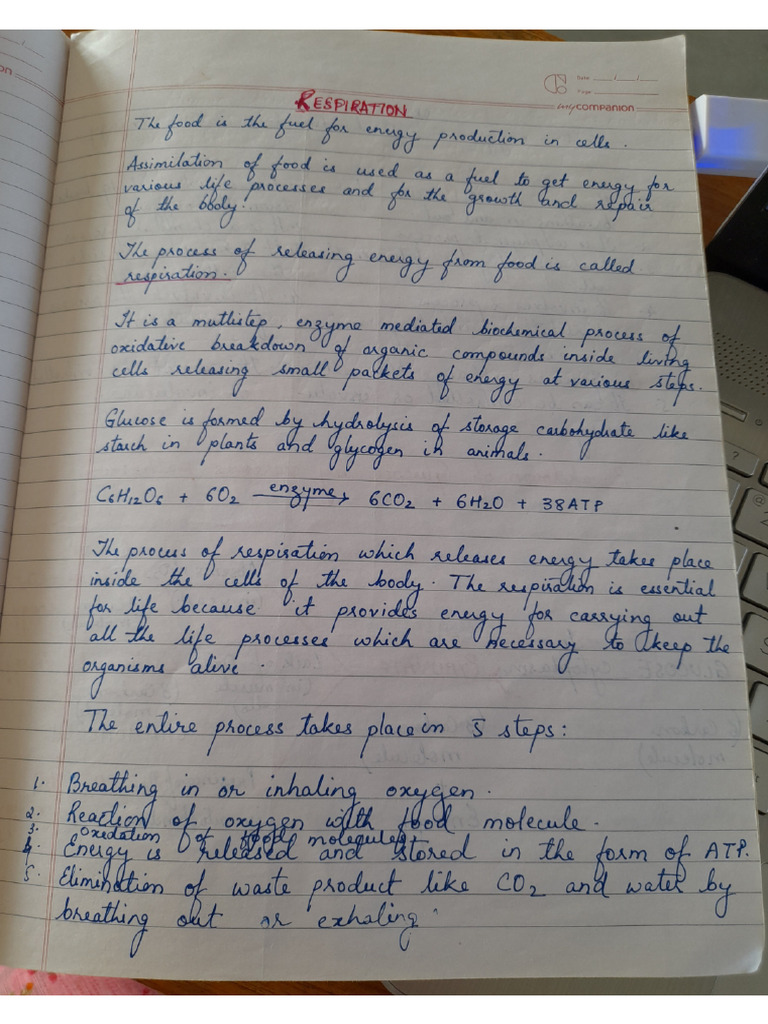 Date
Page
easycompanion
RESPIRATION
The food is the fuel for energy production in cells.
Assimilation of food is used as a fuel to get energy for
various life processes and for the growth and repair
of the body.
The process of releasing energy from food is called
respiration.
It is a mutlistep, enzyme mediated biochemical process of
oxidative breakdown of organic compounds inside living
cells releasing small packets of energy at various steps.
Glucose is formed by hydrolysis of storage carbohydrate like
starch in plants and glycogen in animals.
C6H12O6 + 6O2 enzyme→ 6CO2 + 6H2O + 38ATP
The process of respiration which releases energy takes place
inside the cells of the body. The respiration is essential
for life because it provides energy for carrying out
all the life processes which are necessary to keep the
organisms alive.
The entire process takes place in 5 steps:
1. Breathing in or inhaling oxygen.
2. Reaction of oxygen with food molecule.
3. oxidation of food molecules
4. Energy is released and stored in the form of ATP.
5. Elimination of waste product like CO2 and water by
breathing out or exhaling.